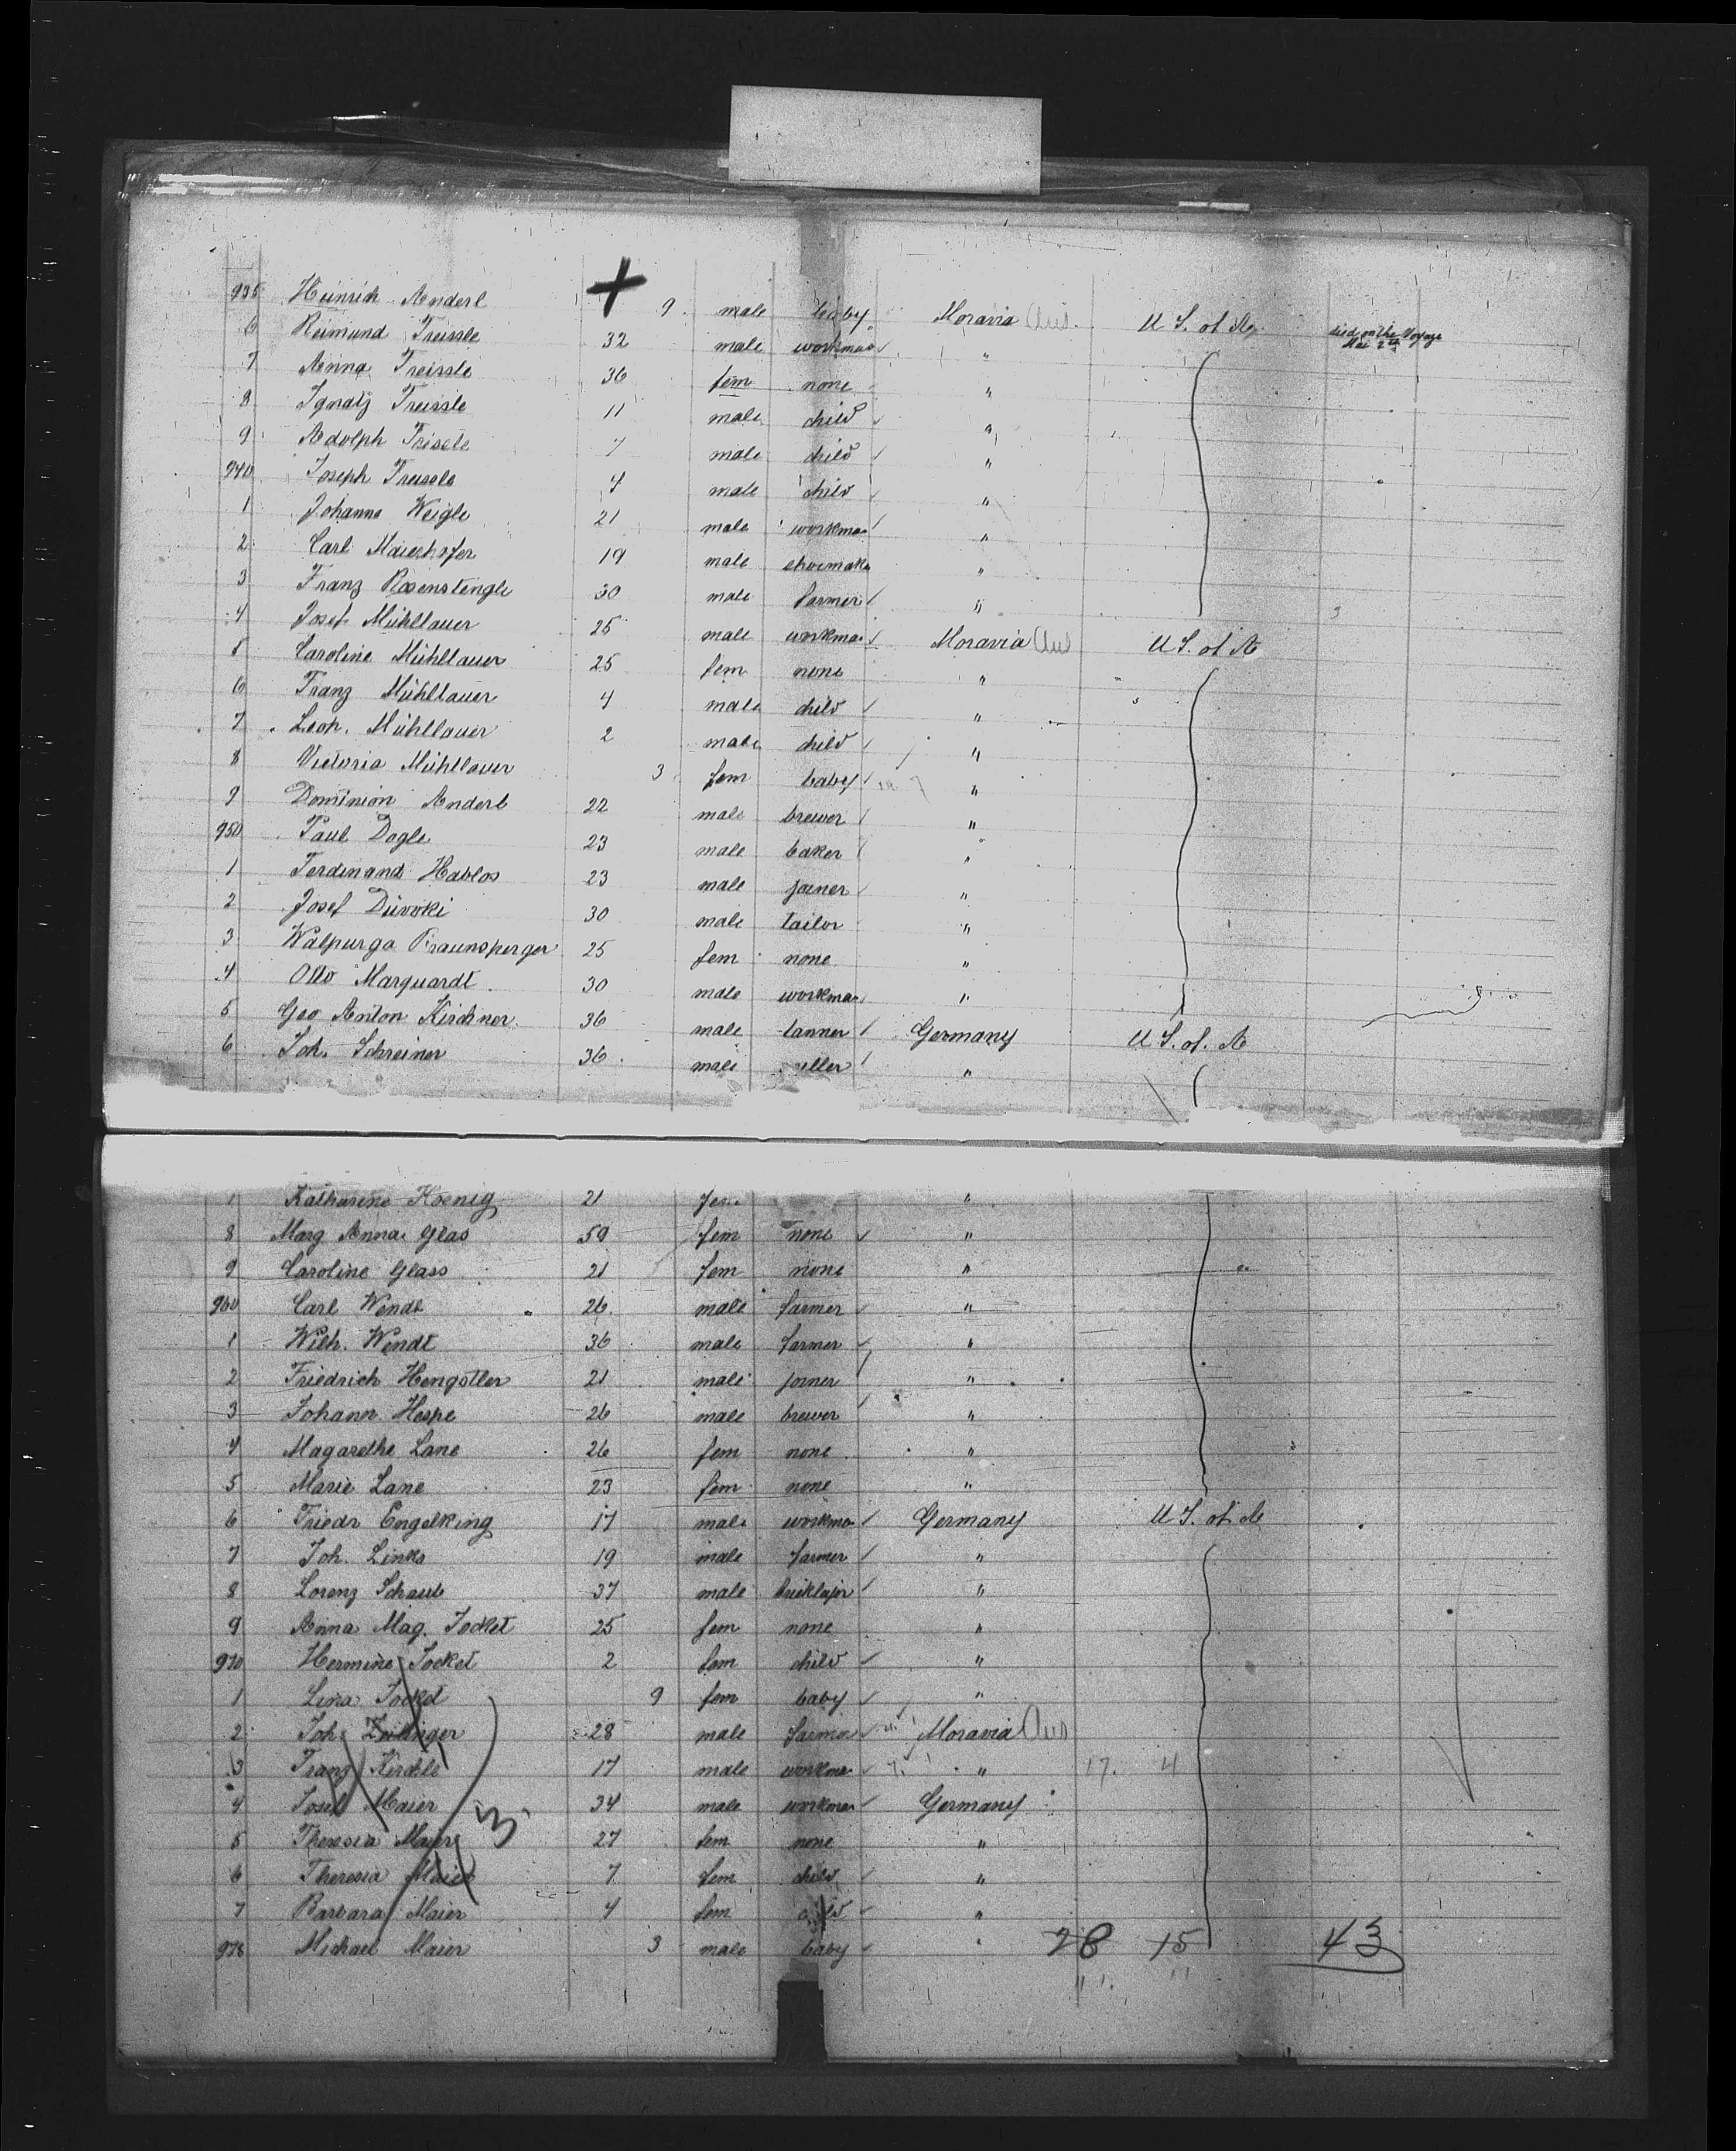 935 Heinrich Anderl + 9 male baby Moravia Aus. U S. of A. died on the Voyage
6 Reimund Treissle 32 male workman "
7 Anna Treissle 36 fem none "
8 Ignatz Treissle 11 male child "
9 Adolph Trissle 7 male child "
940 Joseph Treissle 4 male child "
1 Johann Weigle 21 male workman "
2 Carl Maierhofer 19 male shoemaker "
3 Franz Rosenstengle 30 male farmer "
4 Josef Mühllauer 25 male workman Moravia Aus U S. of A
5 Caroline Mühllauer 25 fem none "
6 Franz Mühllauer 4 male child "
7 Leop. Mühllauer 2 male child "
8 Victoria Mühllauer 3 fem baby "
9 Dominion Anderl 22 male brewer "
950 Paul Dogle 23 male baker "
1 Ferdinand Hablos 23 male joiner "
2 Josef 30 male tailor "
3 Walpurga Braunsperger 25 fem none "
4 Otto Marquardt 30 male workman "
5 Geo Anton Kirchner 36 male tanner Germany U S. of. A
6 Joh. Schreiner 36 male "
Katharine Koenig 21 fem "
8 Marg Anna Glas 59 fem none "
9 Caroline Glass 21 fem none "
960 Carl Wendt 26 male farmer "
1 Wilh. Wendt 36 male farmer "
2 Friedrich Hengstler 21 male joiner "
3 Johann Hespe 26 male brewer "
4 Magarethe Lane 26 fem none "
5 Marie Lane 23 fem none "
6 Friedr Engelking 17 male workman Germany U S. of A
7 Joh. Links 19 male farmer "
8 Lorenz Schaub 37 male "
9 Anna Mag. Jocket 25 fem none "
970 Hermine Jocket 2 fem child "
1 Lina Jocket 9 fem baby "
2 Joh. Zeilinger 28 male farmer Moravia Aus
3 Franz Kirchle 17 male workman " 17. 4
4 Josef Maier 34 male workman Germany
5 Theresia Maier 27 fem none "
6 Theresia Maier 7 fem child "
7 Barbara Maier 4 fem child "
978 Michael Maier 3 male baby " 28 15 43